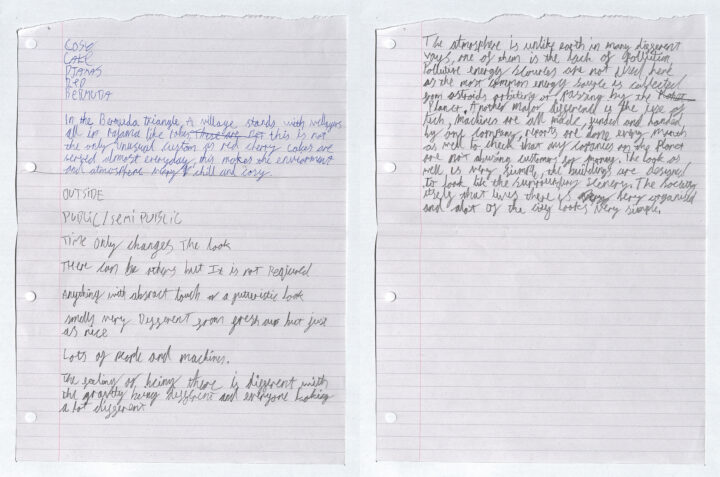 COSY
CAKE
PJAMAS
RED
BERMUDA
In the Bermuda triangle, A village stands with
all in Pajama like robes these are but this is not
the only unusual custom as red cherry cakes are
served almost everyday, this makes the enviorment
and atmosphere very chill and cosy.
OUTSIDE
PUBLIC/semi PUBLIC
Time only changes The look
There can be others but It is not Required
Anything with abstract touch or a futuristic look
smells very Different from fresh air but just
as nice
Lots of people and machines.
The feeling of being there is different with
the gravity being different and everyone looking
a lot different
The atmosphere is unlike earth in many different
ways, one of them is the lack of Pollution
Pollutive energy sources are not used here
as the most common energy source is collected
from astroids orbiting or passing by the
Planet. Another major difference is the use of
tech, machines are all made, funded and handed
by one company, reports are done every month
as well to check that any companies on the Planet
are not abusing customers for money. The look as
well is very simple, the buildings are designed
to look like the surrounding scenery. The society
itself that lives there is very very organised
and alot of the city looks very simple.